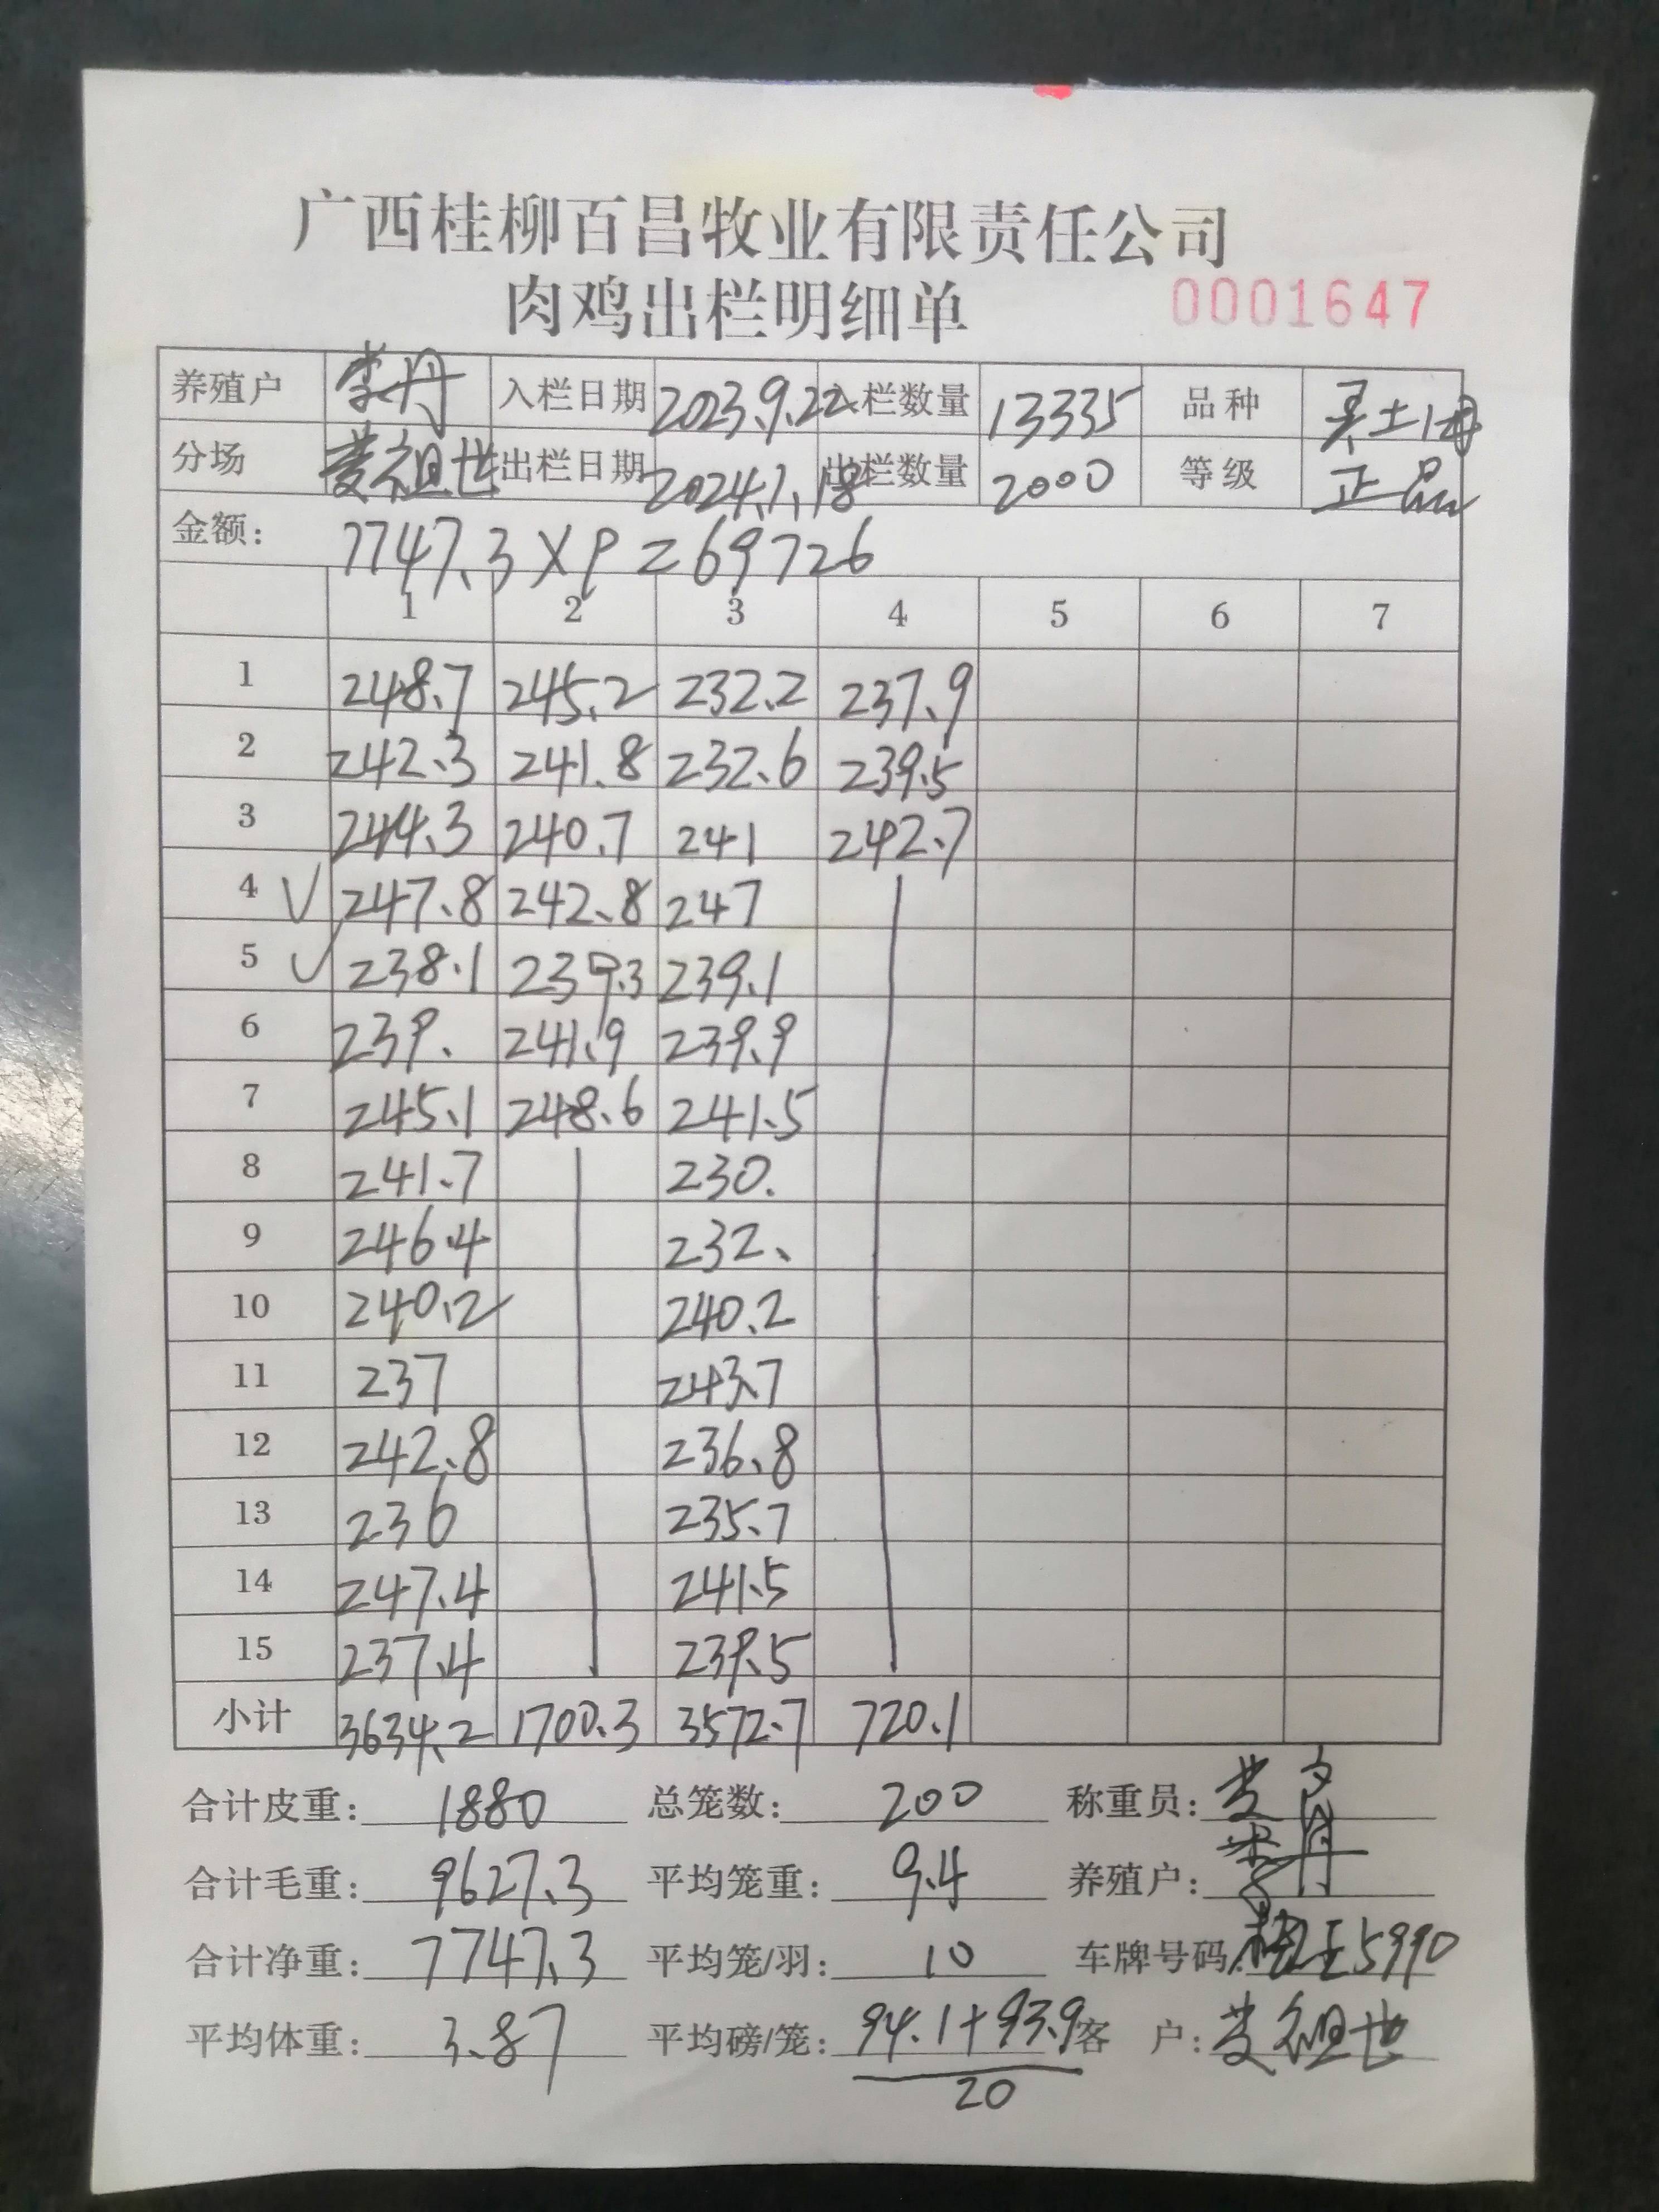 广西桂柳百昌牧业有限责任公司
肉鸡出栏明细单 0001647
养殖户 李丹 入栏日期 2023.9.22 入栏数量 13335 品种 土
分场 祖世 出栏日期 2024.1.18 出栏数量 2000 等级 正品
金额: 7747.3×9=69726
1 2 3 4 5 6 7
1 248.7 245.2 232.2 237.9
2 242.3 241.8 232.6 239.5
3 244.3 240.7 241 242.7
4 √ 247.8 242.8 247
5 √ 238.1 239.3 239.1
6 239. 241.9 239.9
7 245.1 248.6 241.5
8 241.7 230.
9 246.4 232.
10 240.2 240.2
11 237 243.7
12 242.8 236.8
13 236 235.7
14 247.4 241.5
15 237.4 239.5
小计 3634.2 1700.3 3572.7 720.1
合计皮重: 1880 总笼数: 200 称重员:
合计毛重: 9627.3 平均笼重: 9.4 养殖户: 李丹
合计净重: 7747.3 平均笼/羽: 10 车牌号码: 5990
平均体重: 3.87 平均磅/笼: 94.1+93.9 客 户: 祖世
20